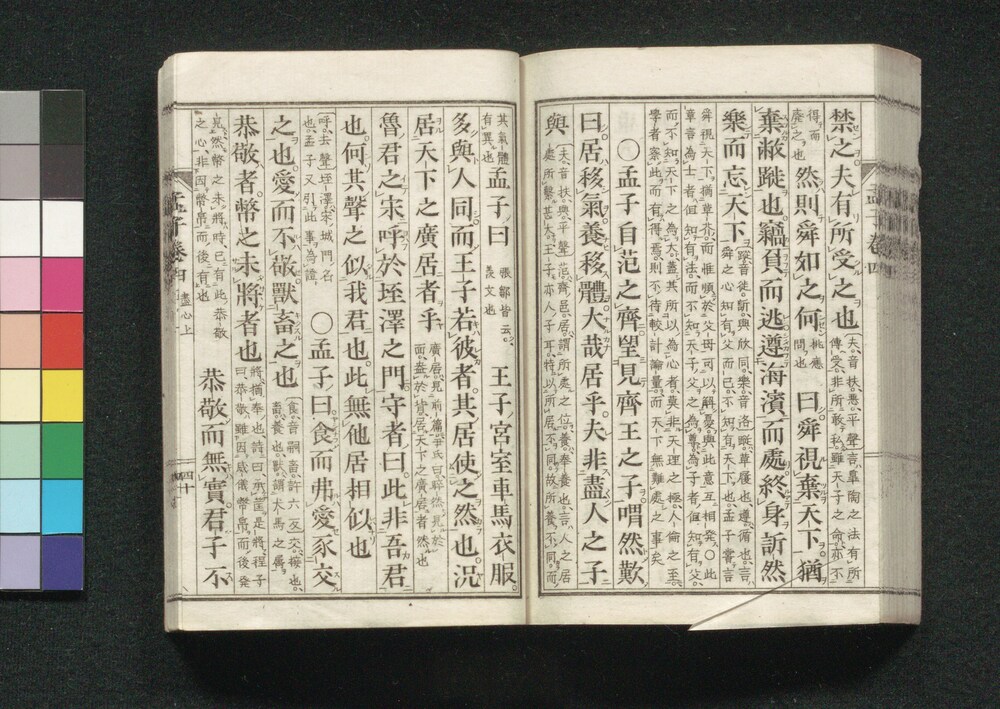 禁之夫有所受之也
夫音扶惡平聲言皐陶之法有所
傳受非所敢私雖天子之命亦不
得而
廢之也
然則舜如之何
桃應
問也
曰舜視棄天下猶
棄敝蹝也竊負而逃遵海濱而處終身訢然
樂而忘天下
蹝音徙訢與欣同樂音洛蹝草履也遵循也言
舜之心知有父而已不知有天下也孟子嘗言
舜視天下猶草芥而惟順於父母可以解憂與此意互相發○此
章言為士者但知有法而不知天子父之為尊為子者但知有父
而不知天下之為大蓋其所以為心者莫非天理之極人倫之至
學者察此而有得焉則不待較計論量而天下無難處之事矣
○孟子自范之齊望見齊王之子喟然歎
曰居移氣養移體大哉居乎夫非盡人之子
與
夫音扶與平聲○范齊邑居謂所處之位養奉養也言人之居
處所繫甚大王子亦人子耳特以所居不同故所養不同而
孟子卷四
其氣體
有異也
孟子曰
張鄒皆云
羨文也
王子宮室車馬衣服
多與人同而王子若彼者其居使之然也況
居天下之廣居者乎
廣居見前篇尹氏曰睟然見於
面盎於背居天下之廣居者然也
魯君之宋呼於垤澤之門守者曰此非吾君
也何其聲之似我君也此無他居相似也
呼去聲垤澤宋城門名
也孟子又引此事為證
○孟子曰食而弗愛豕交
之也愛而不敬獸畜之也
食音嗣畜許六反交接也
畜養也獸謂犬馬之屬
恭敬者幣之未將者也
將猶奉也詩曰承筐是將程子
曰恭敬雖因威儀幣帛而後發
見然幣之未將時已有此恭敬
之心非因幣帛而後有也
恭敬而無實君子不
孟子卷四
盡心上
四十